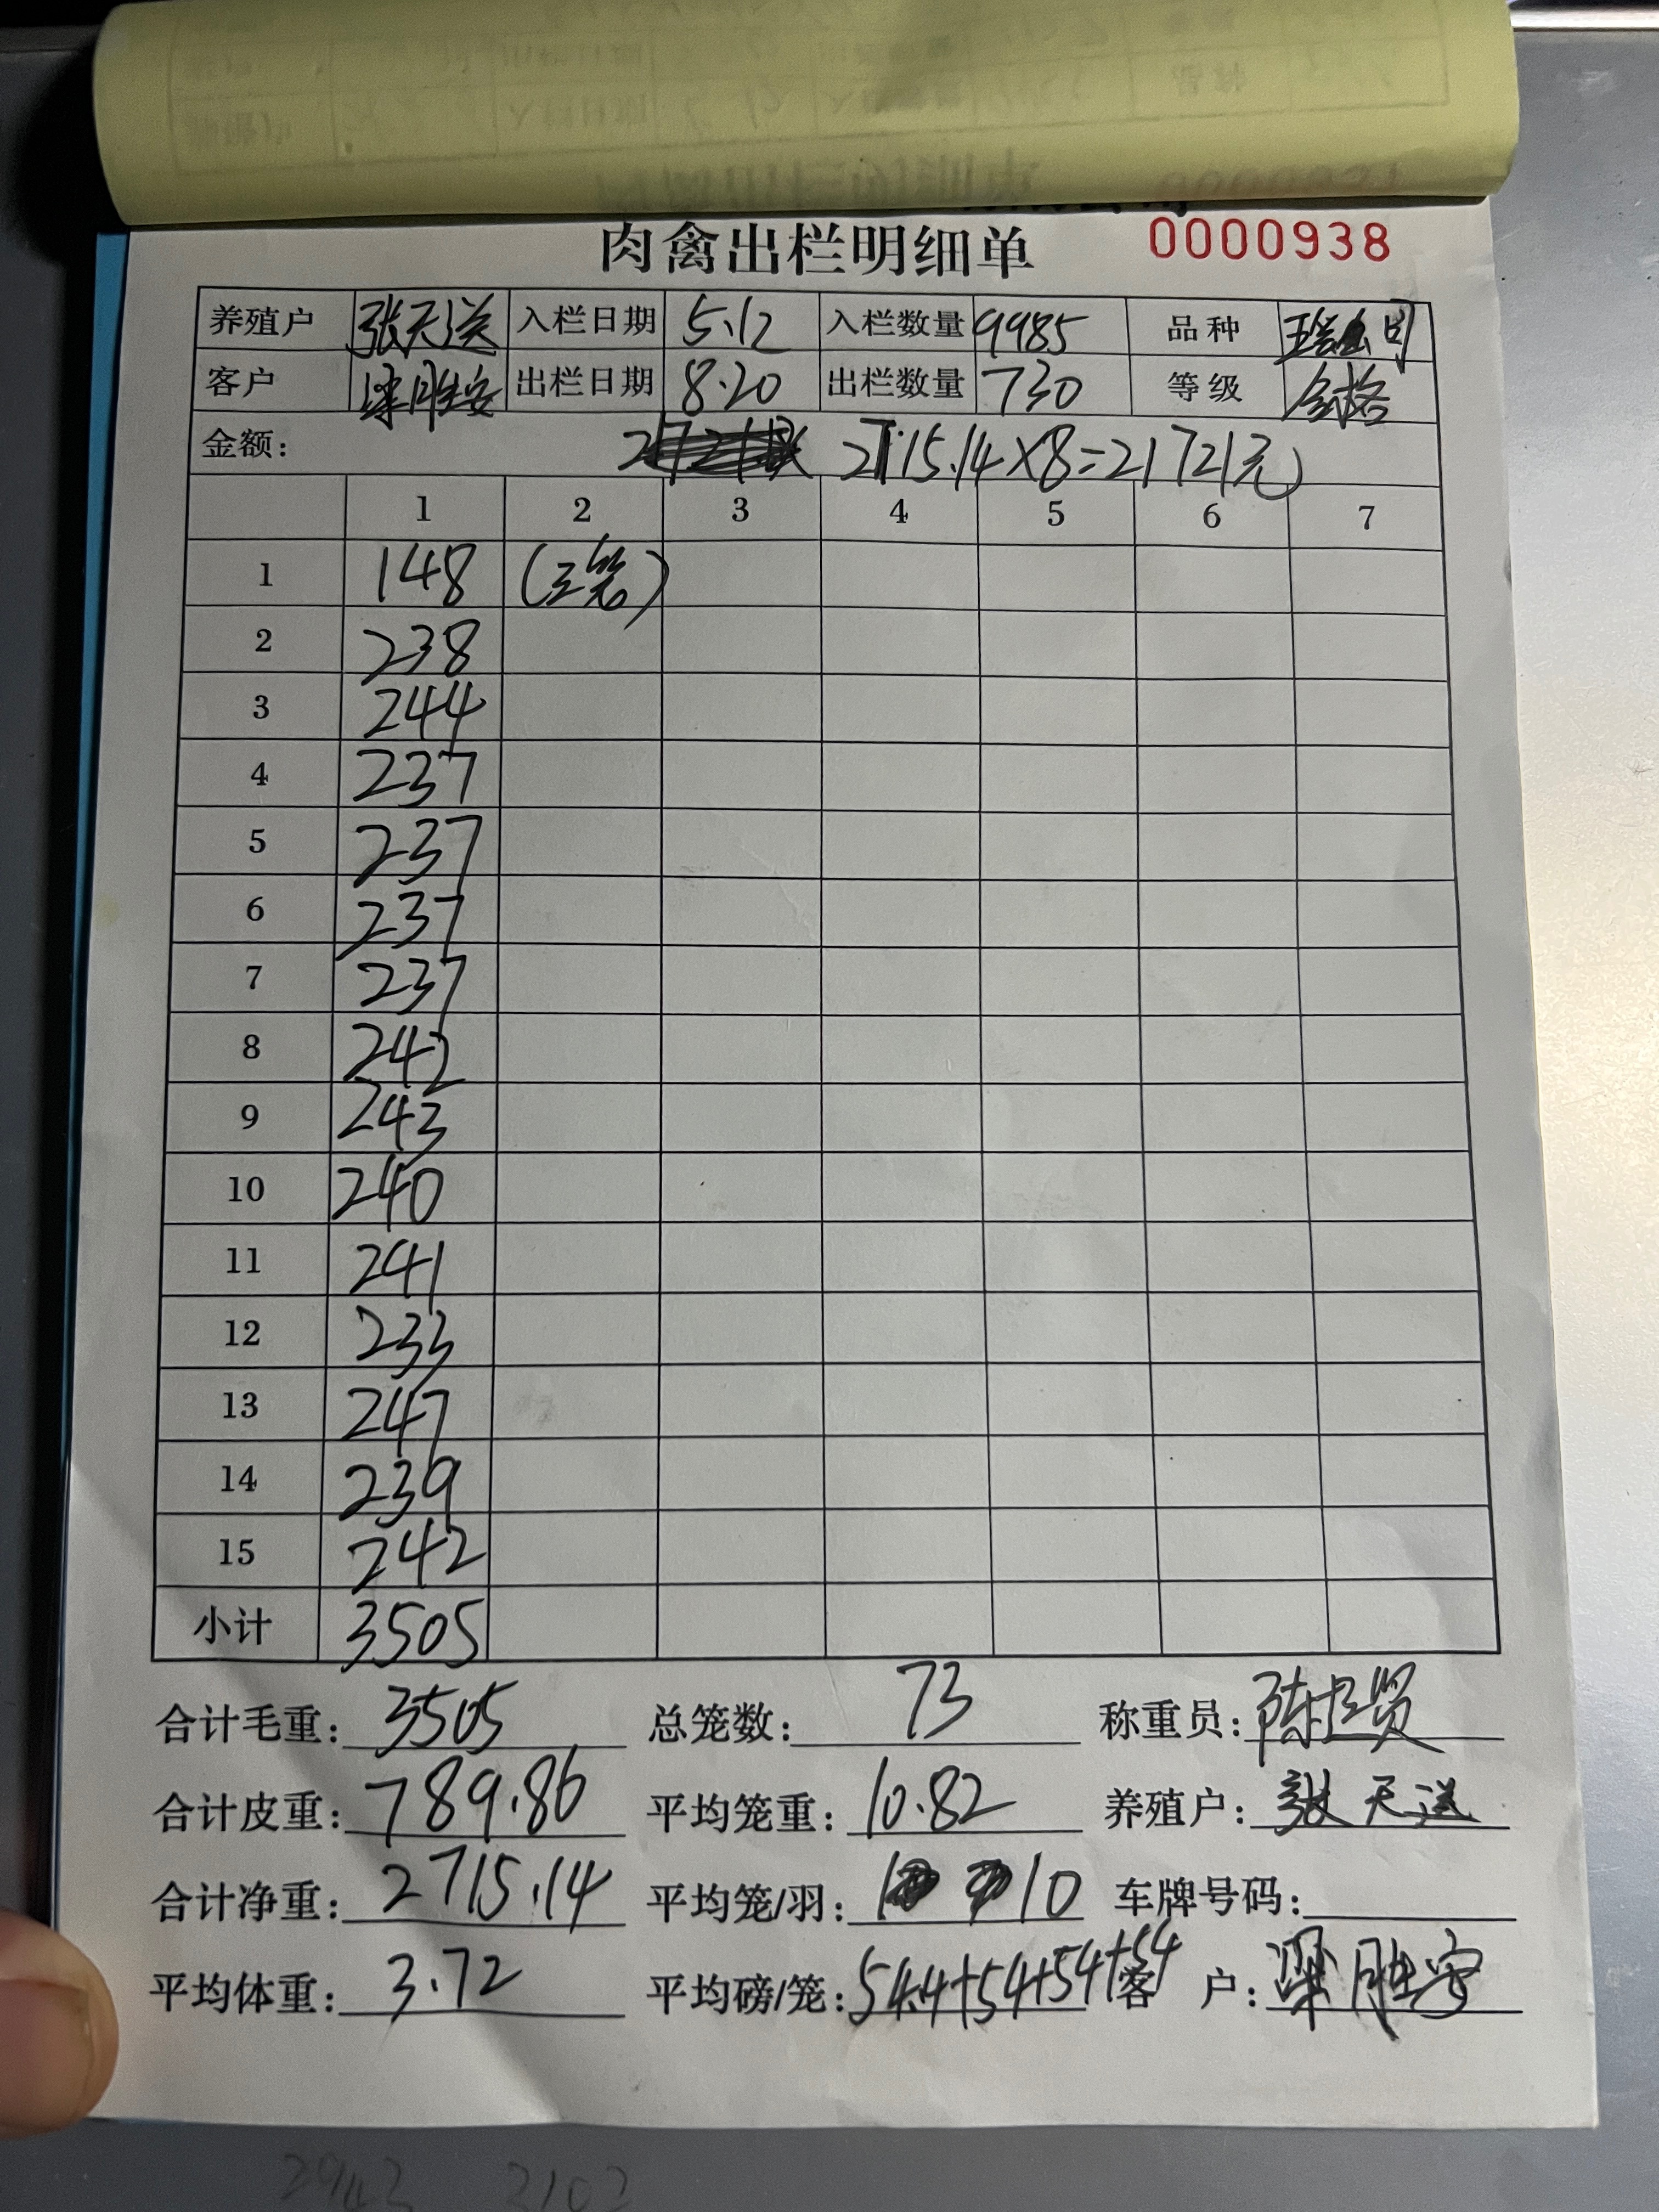 肉禽出栏明细单 0000938
养殖户 张天送 入栏日期 5.12 入栏数量 9985 品种
客户 梁胜安 出栏日期 8.20 出栏数量 730 等级 合格
金额: 2715.14×8=21721元
1 2 3 4 5 6 7
1 148 (三笼)
2 238
3 244
4 237
5 237
6 237
7 237
8 242
9 243
10 240
11 241
12 233
13 247
14 239
15 242
小计 3505
合计毛重: 3505 总笼数: 73 称重员:
合计皮重: 789.86 平均笼重: 10.82 养殖户: 张天送
合计净重: 2715.14 平均笼/羽: 10 车牌号码:
平均体重: 3.72 平均磅/笼: 54.4+54+54+54 客户: 梁胜安
2943 2102